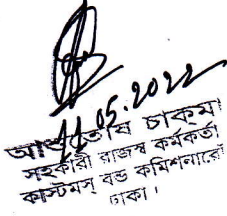 11.05.2022
আশুতোষ চাকমা
সহকারী রাজস্ব কর্মকর্তা
কাস্টমস্ বন্ড কমিশনারেট
ঢাকা।